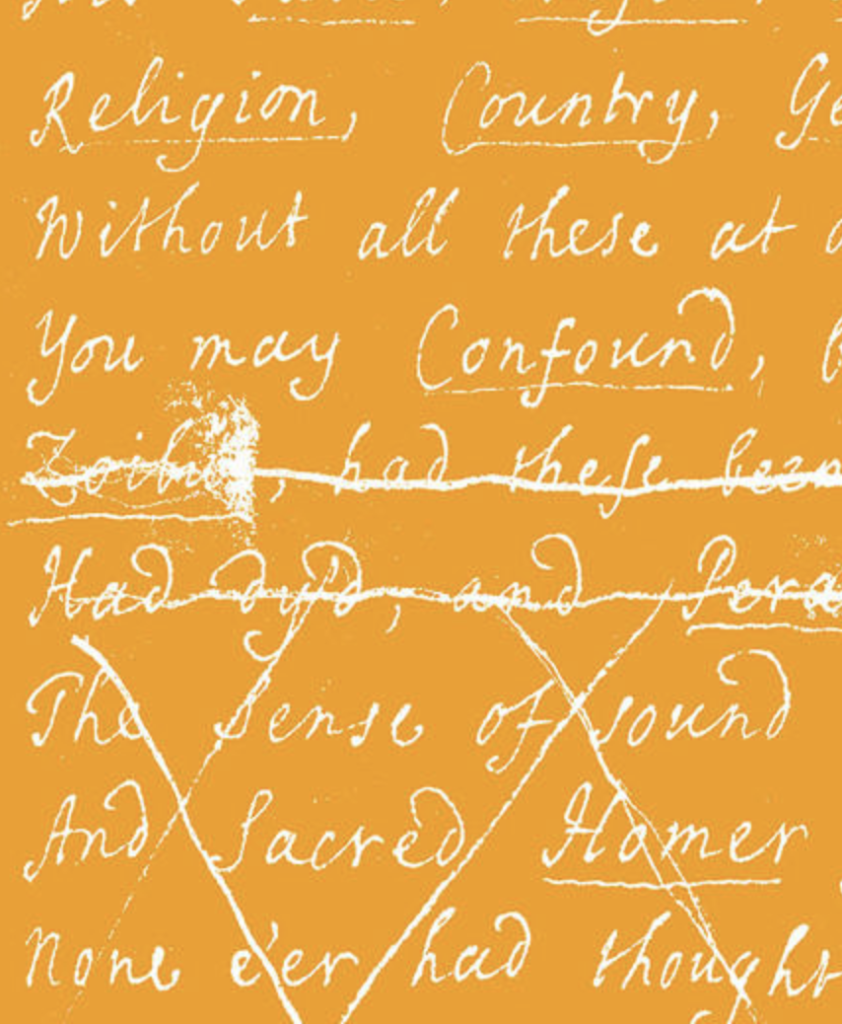 Religion, Country, Ge
Without all these at
You may Confound,
had these been
Had dy'd, and Pera
The Sense of sound
And Sacred Homer
None e'er had thought